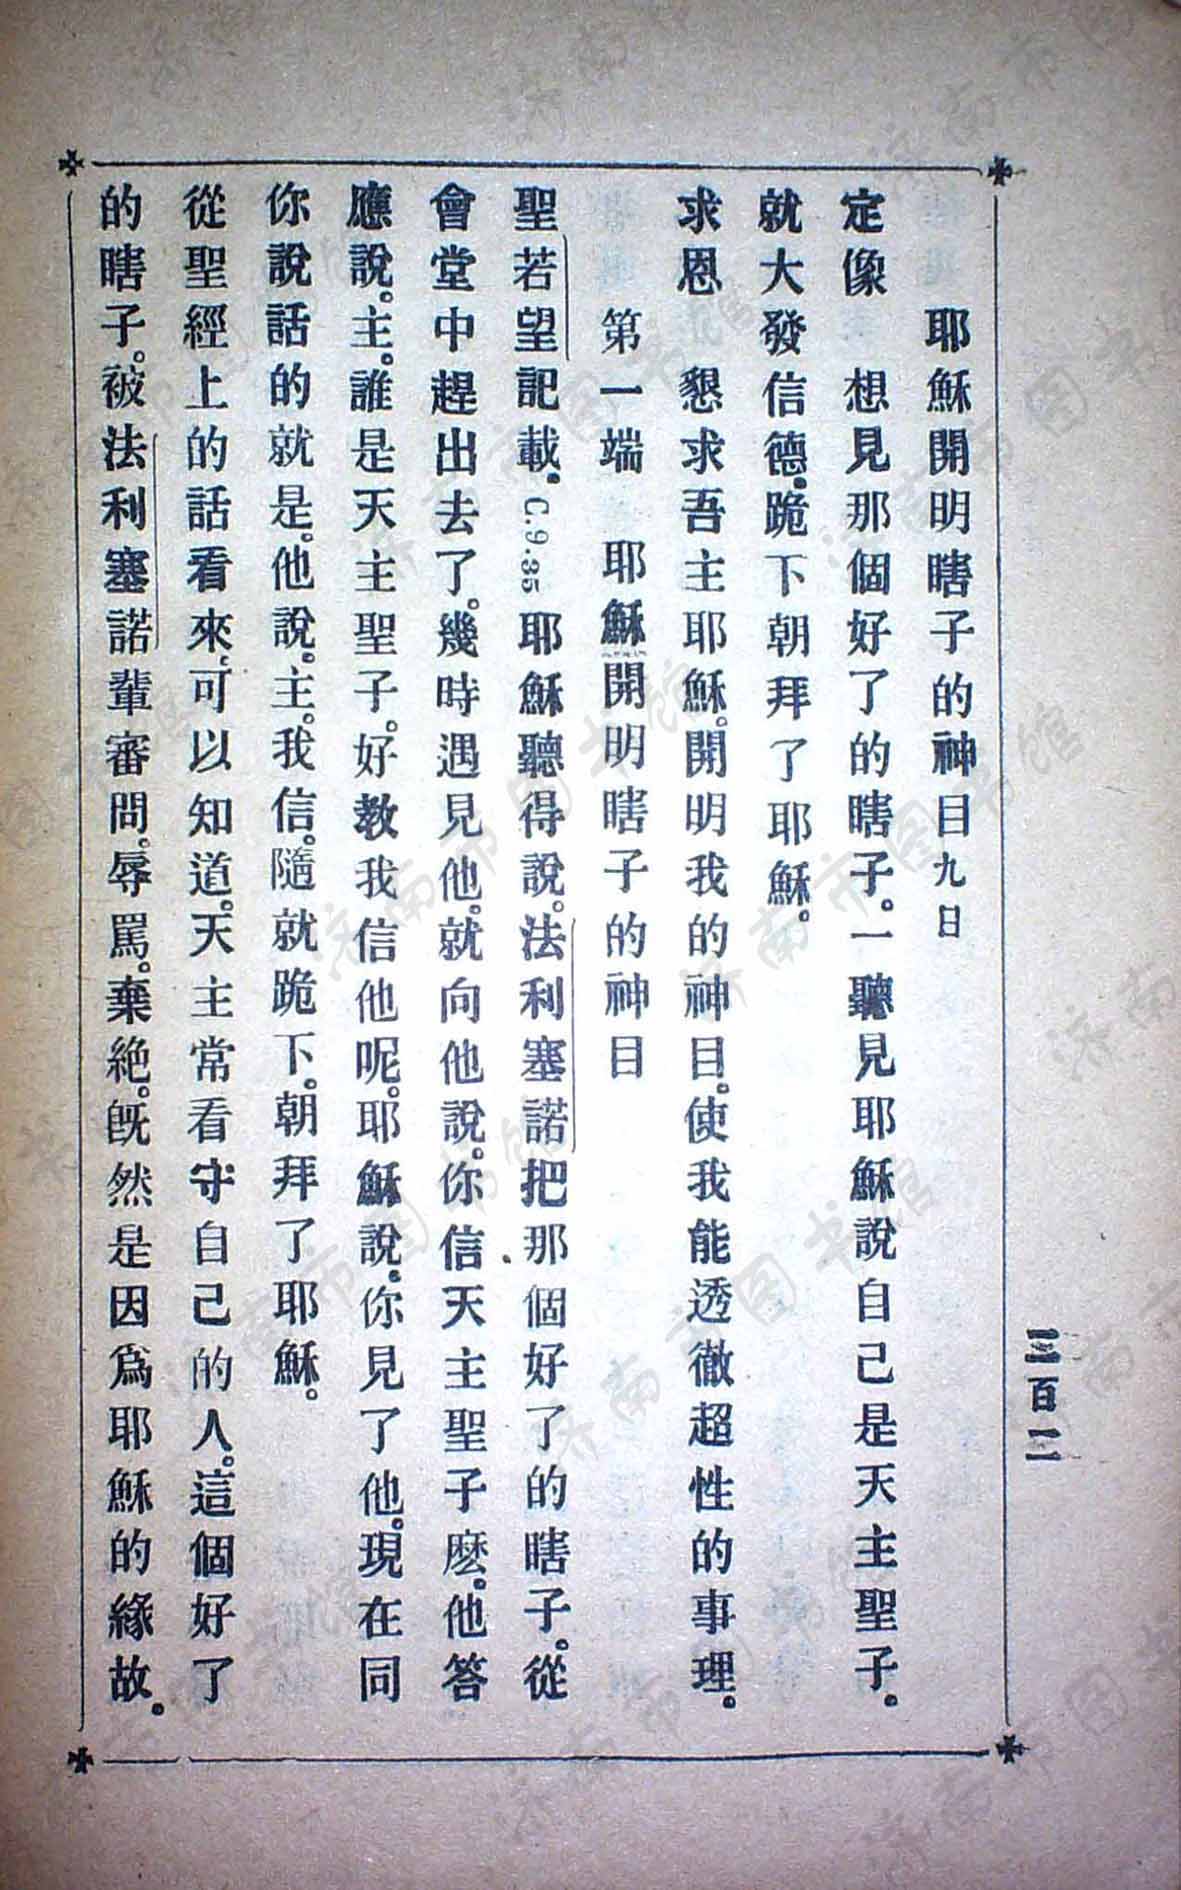 三百二
耶穌開明瞎子的神目九日
定像　想見那個好了的瞎子。一聽見耶穌說自己是天主聖子。
就大發信德。跪下朝拜了耶穌。
求恩　懇求吾主耶穌。開明我的神目。使我能透徹超性的事理。
第一端　耶穌開明瞎子的神目
聖若望記載。C.9.35 耶穌聽得說。法利塞諾把那個好了的瞎子。從
會堂中趕出去了。幾時遇見他。就向他說。你信天主聖子麼。他答
應說。主。誰是天主聖子。好教我信他呢。耶穌說。你見了他。現在同
你說話的就是。他說。主。我信。隨就跪下。朝拜了耶穌。
從聖經上的話看來、可以知道。天主常看守自己的人。這個好了
的瞎子。被法利塞諾輩審問。辱罵。棄絕。旣然是因爲耶穌的緣故。
济南市图书馆